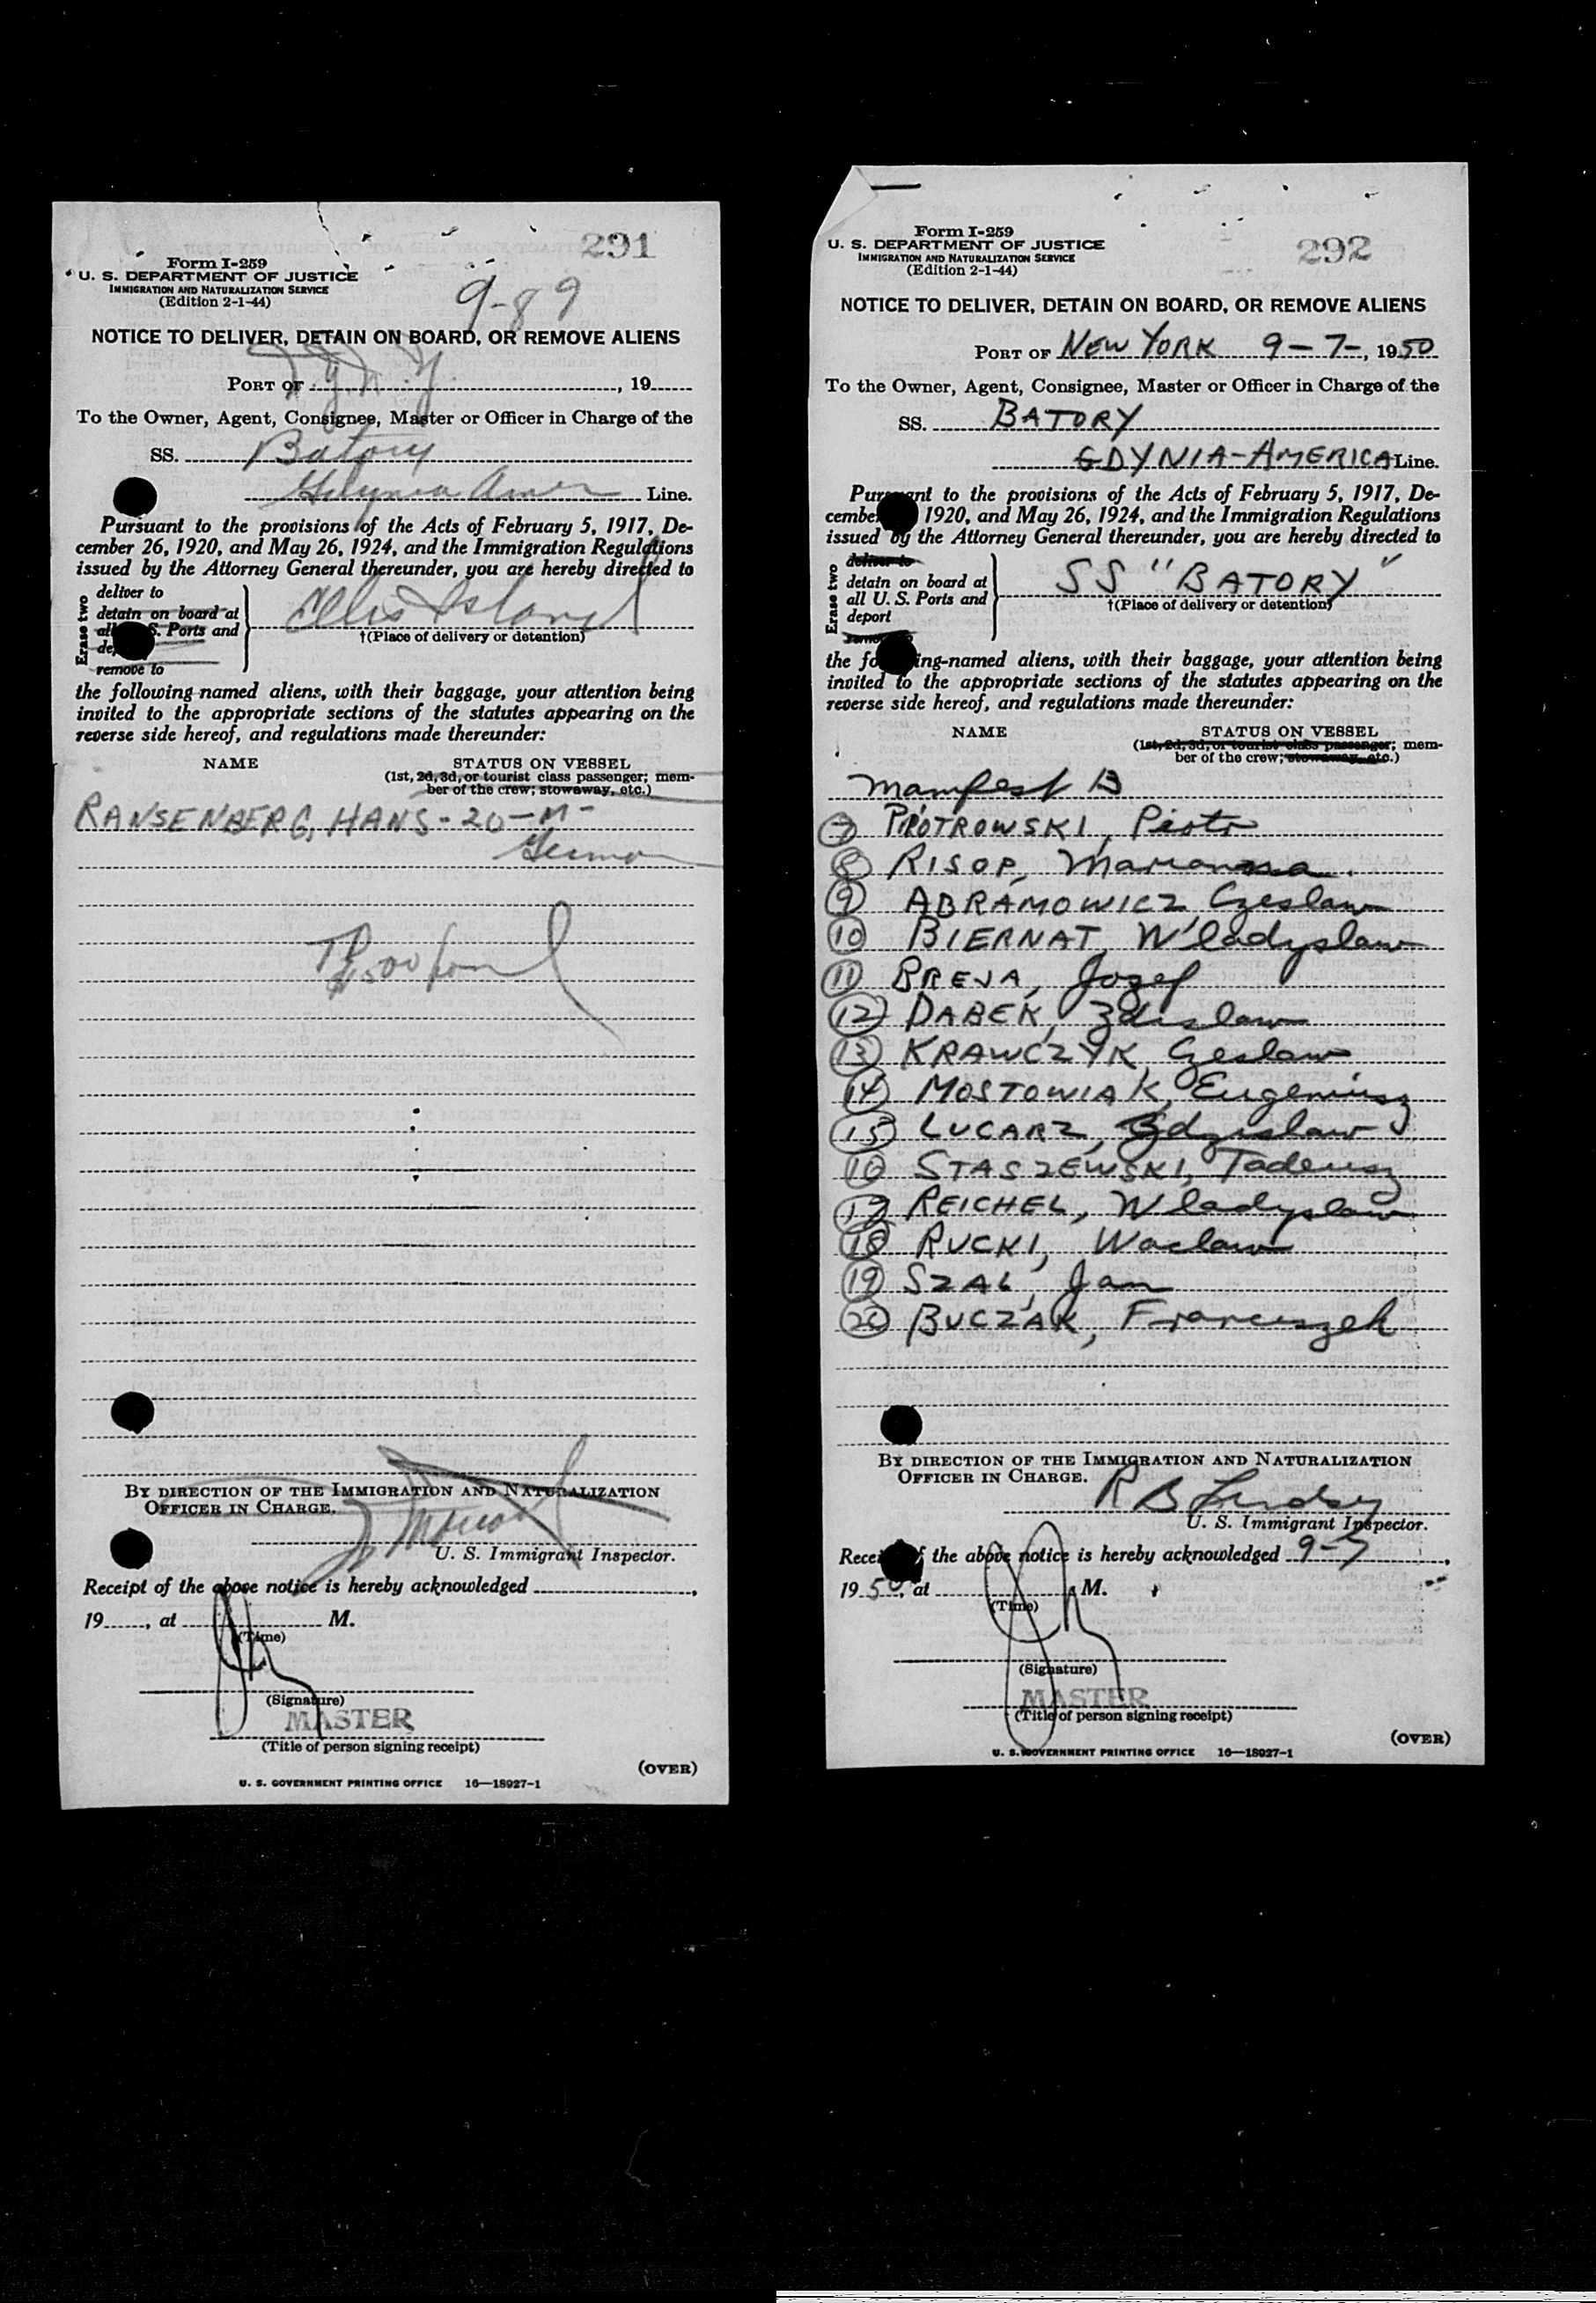 291
Form I-259
U. S. DEPARTMENT OF JUSTICE
IMMIGRATION AND NATURALIZATION SERVICE
(Edition 2-1-44)
9-89
NOTICE TO DELIVER, DETAIN ON BOARD, OR REMOVE ALIENS
PORT OF N.Y. , 19
To the Owner, Agent, Consignee, Master or Officer in Charge of the
SS. Batory
Gdynia Amer Line.
Pursuant to the provisions of the Acts of February 5, 1917, De-
cember 26, 1920, and May 26, 1924, and the Immigration Regulations
issued by the Attorney General thereunder, you are hereby directed to
Erase two
deliver to
detain on board at
all U. S. Ports and
remove to
Ellis Island
†(Place of delivery or detention)
the following-named aliens, with their baggage, your attention being
invited to the appropriate sections of the statutes appearing on the
reverse side hereof, and regulations made thereunder:
NAME STATUS ON VESSEL
(1st, 2d, 3d, or tourist class passenger; mem-
ber of the crew; stowaway, etc.)
RANSENBERG, HANS - 20 - M -
German
500
BY DIRECTION OF THE IMMIGRATION AND NATURALIZATION
OFFICER IN CHARGE.
U. S. Immigrant Inspector.
Receipt of the above notice is hereby acknowledged ,
19 , at M.
(Time)
(Signature)
MASTER
(Title of person signing receipt)
(OVER)
U. S. GOVERNMENT PRINTING OFFICE 16—18927-1
292
Form I-259
U. S. DEPARTMENT OF JUSTICE
IMMIGRATION AND NATURALIZATION SERVICE
(Edition 2-1-44)
NOTICE TO DELIVER, DETAIN ON BOARD, OR REMOVE ALIENS
PORT OF NEW YORK 9-7-, 1950
To the Owner, Agent, Consignee, Master or Officer in Charge of the
SS. BATORY
GDYNIA-AMERICA Line.
Pursuant to the provisions of the Acts of February 5, 1917, De-
cember 1920, and May 26, 1924, and the Immigration Regulations
issued by the Attorney General thereunder, you are hereby directed to
Erase two
deliver to
detain on board at
all U. S. Ports and
deport
SS "BATORY"
†(Place of delivery or detention)
the following-named aliens, with their baggage, your attention being
invited to the appropriate sections of the statutes appearing on the
reverse side hereof, and regulations made thereunder:
NAME STATUS ON VESSEL
(1st, 2d, 3d, or tourist class passenger; mem-
ber of the crew; stowaway, etc.)
Manifest B
7 PIOTROWSKI, Piotr
8 RISOP, Marianna
9 ABRAMOWICZ, Czeslaw
10 BIERNAT, Wladyslaw
11 BREJA, Jozef
12 DABEK, Zdislaw
13 KRAWCZYK, Czeslaw
14 MOSTOWIAK, Eugeniusz
15 LUCARZ, Zdzislaw
16 STASZEWSKI, Tadeusz
17 REICHEL, Wladyslaw
18 RUCKI, Waclaw
19 SZAL, Jan
20 BUCZAK, Franciszek
BY DIRECTION OF THE IMMIGRATION AND NATURALIZATION
OFFICER IN CHARGE.
R B Lindsy
U. S. Immigrant Inspector.
Receipt of the above notice is hereby acknowledged 9-7 ,
1950, at M.
(Time)
(Signature)
MASTER
(Title of person signing receipt)
(OVER)
U. S. GOVERNMENT PRINTING OFFICE 16—18927-1